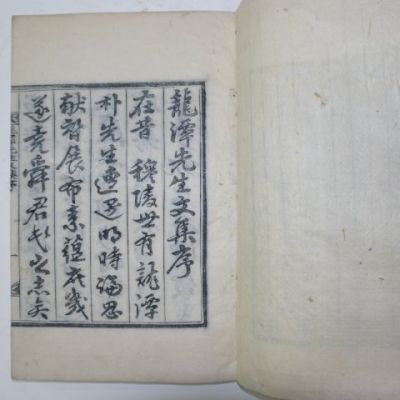 龍潭先生文集序
在昔 穆陵世有龍潭
朴先生遭遇明時竭思
献替展布素蘊庶幾
遂堯舜君民之志矣